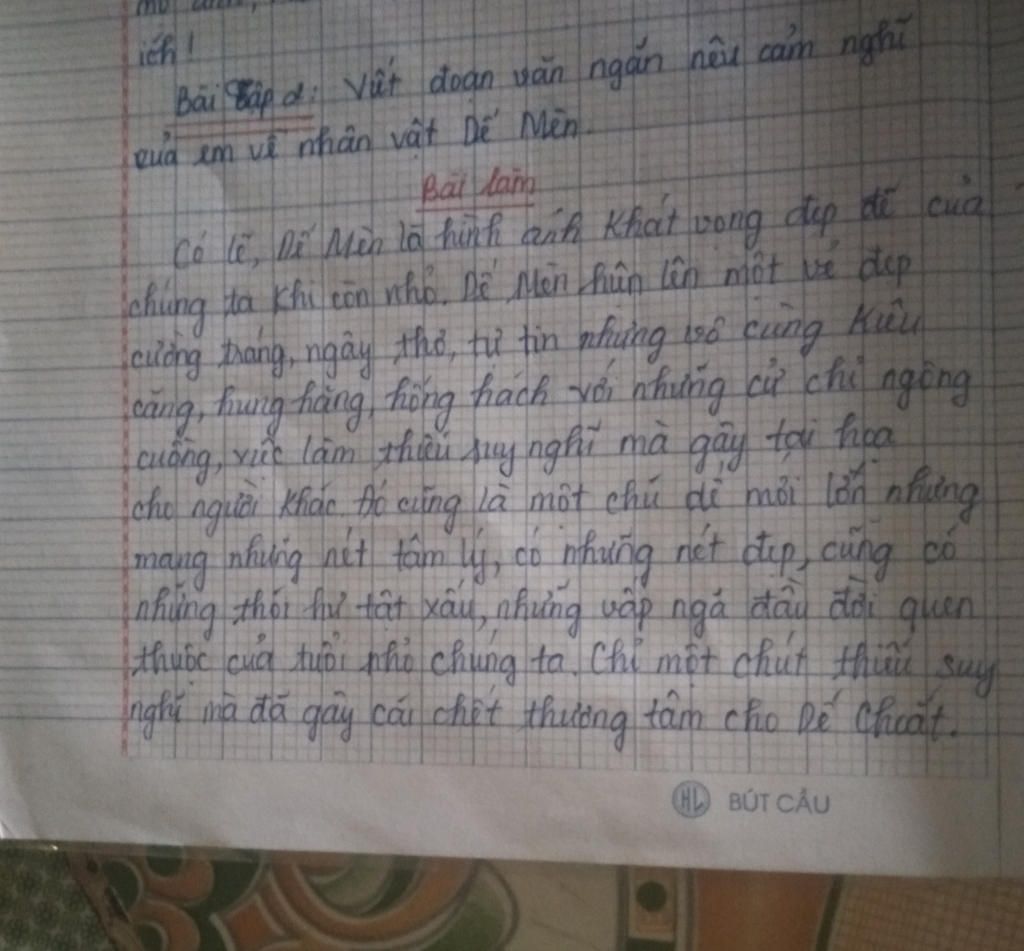 ích!
Bài tập 2: Viết đoạn văn ngắn nêu cảm nghĩ
của em về nhân vật Dế Mèn.
Bài làm
Có lẽ, Dế Mèn là hình ảnh khát vọng đẹp đẽ của
chúng ta khi còn nhỏ. Dế Mèn hiện lên một vẻ đẹp
cường tráng, ngây thơ, tự tin nhưng vô cùng kiêu
căng, hung hăng, hống hách với những cử chỉ ngông
cuồng, việc làm thiếu suy nghĩ mà gây tai họa
cho người khác. Đó cũng là một chú dế mới lớn nhưng
mang những nét tâm lý, có những nét đẹp, cũng có
những thói hư tật xấu, những vấp ngã đầu đời quen
thuộc của tuổi nhỏ chúng ta. Chỉ một chút thiếu suy
nghĩ mà đã gây cái chết thương tâm cho Dế Choắt.
HL BÚT CẦU